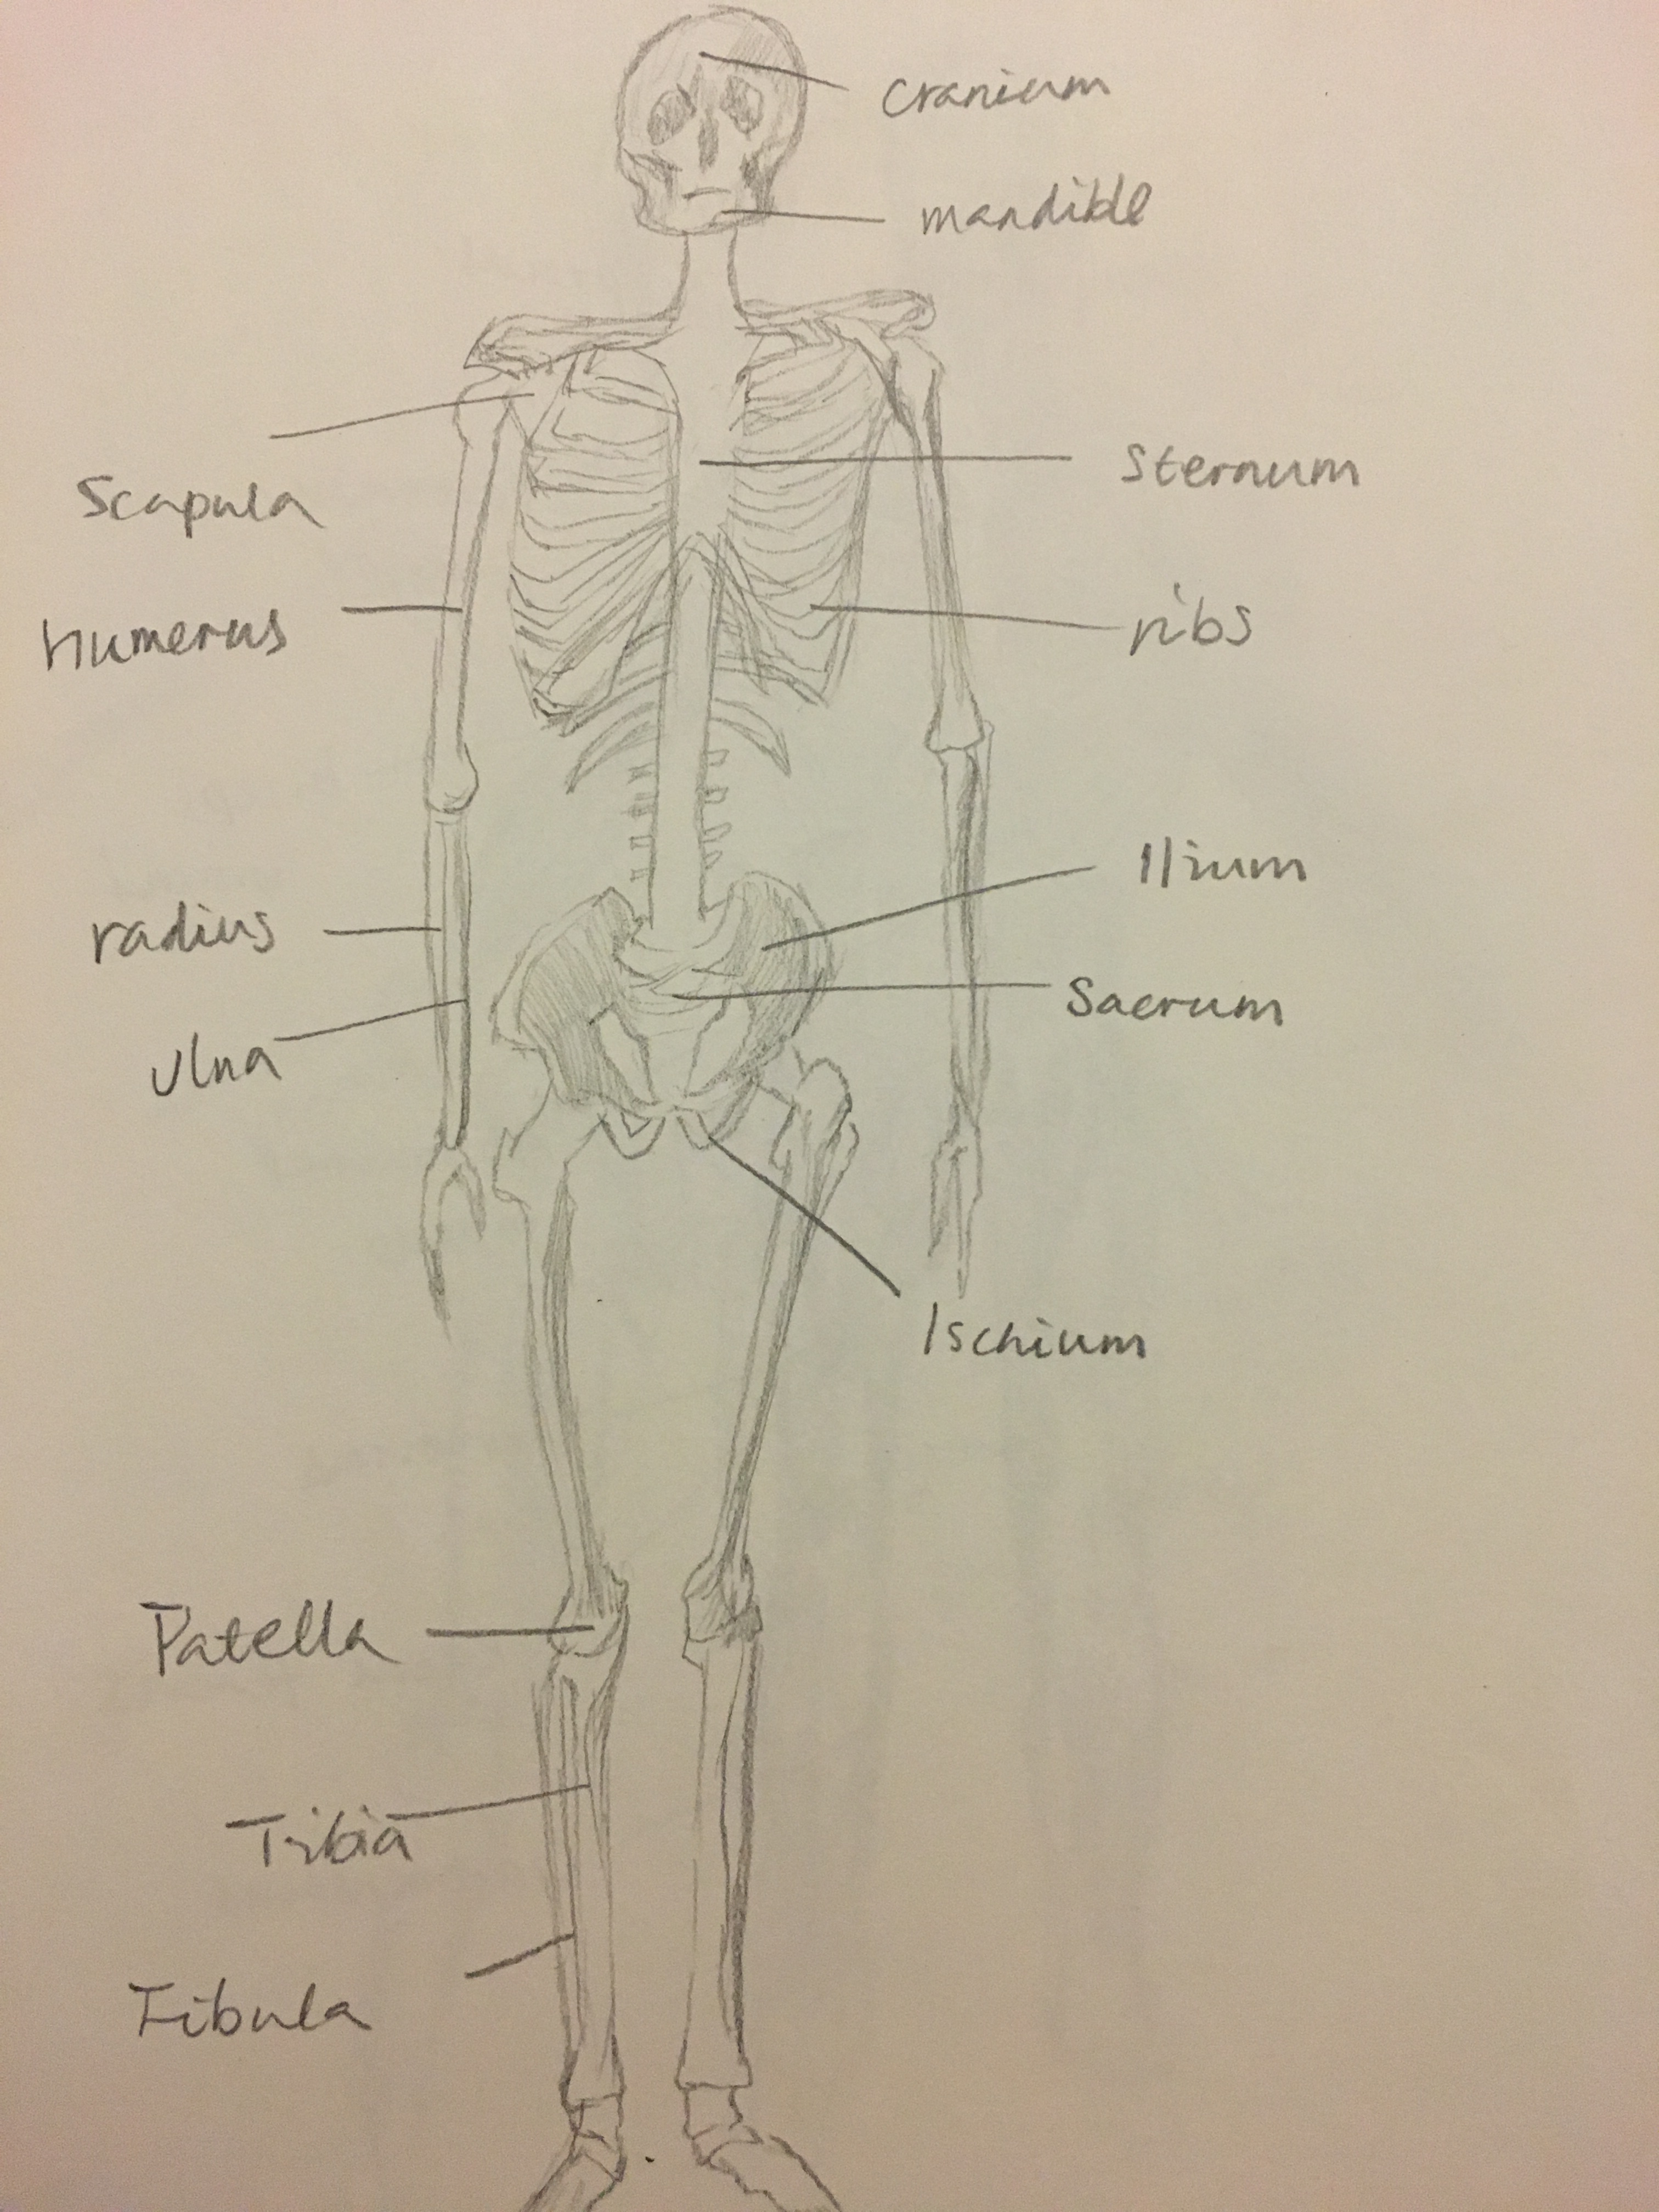 cranium
mandible
Scapula
Sternum
Humerus
ribs
Ilium
radius
Sacrum
Ulna
Ischium
Patella
Tibia
Fibula